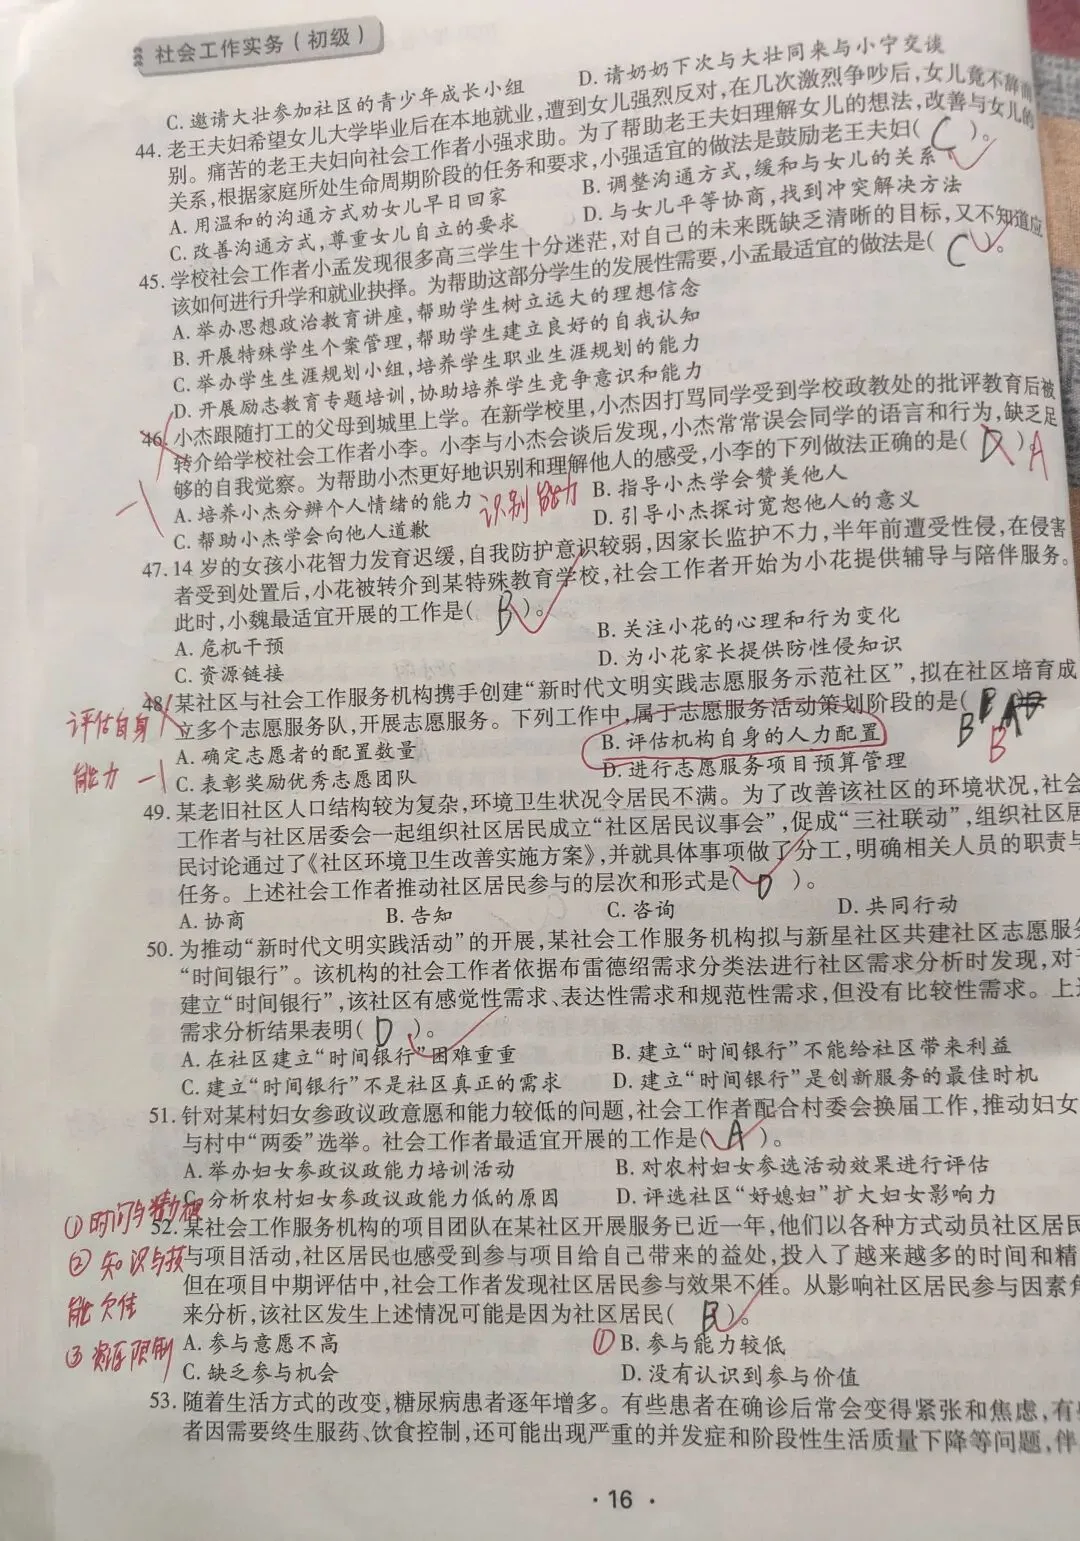 社会工作实务(初级)
C. 邀请大壮参加社区的青少年成长小组 D. 请奶奶下次与大壮同来与小宁交谈
44. 老王夫妇希望女儿大学毕业后在本地就业,遭到女儿强烈反对,在几次激烈争吵后,女儿竟不辞而
别。痛苦的老王夫妇向社会工作者小强求助。为了帮助老王夫妇理解女儿的想法,改善与女儿的
关系,根据家庭所处生命周期阶段的任务和要求,小强适宜的做法是鼓励老王夫妇( C )。
A. 用温和的沟通方式劝女儿早日回家 B. 调整沟通方式,缓和与女儿的关系
C. 改善沟通方式,尊重女儿自立的要求 D. 与女儿平等协商,找到冲突解决方法
45. 学校社会工作者小孟发现很多高三学生十分迷茫,对自己的未来既缺乏清晰的目标,又不知道应
该如何进行升学和就业抉择。为帮助这部分学生的发展性需要,小孟最适宜的做法是( C )。
A. 举办思想政治教育讲座,帮助学生树立远大的理想信念
B. 开展特殊学生个案管理,帮助学生建立良好的自我认知
C. 举办学生生涯规划小组,培养学生职业生涯规划的能力
D. 开展励志教育专题培训,协助培养学生竞争意识和能力
46. 小杰跟随打工的父母到城里上学。在新学校里,小杰因打骂同学受到学校政教处的批评教育后被
转介给学校社会工作者小李。小李与小杰会谈后发现,小杰常常误会同学的语言和行为,缺乏足
够的自我觉察。为帮助小杰更好地识别和理解他人的感受,小李的下列做法正确的是( D )。A
-1
A. 培养小杰分辨个人情绪的能力 识别能力 B. 指导小杰学会赞美他人
C. 帮助小杰学会向他人道歉 D. 引导小杰探讨宽恕他人的意义
47. 14 岁的女孩小花智力发育迟缓,自我防护意识较弱,因家长监护不力,半年前遭受性侵,在侵害
者受到处置后,小花被转介到某特殊教育学校,社会工作者开始为小花提供辅导与陪伴服务。
此时,小魏最适宜开展的工作是( B )。
A. 危机干预 B. 关注小花的心理和行为变化
C. 资源链接 D. 为小花家长提供防性侵知识
48. 某社区与社会工作服务机构携手创建“新时代文明实践志愿服务示范社区”,拟在社区培育成
评估自身 立多个志愿服务队,开展志愿服务。下列工作中,属于志愿服务活动策划阶段的是( B
A. 确定志愿者的配置数量 B. 评估机构自身的人力配置 B
能力 -1 C. 表彰奖励优秀志愿团队 D. 进行志愿服务项目预算管理
49. 某老旧社区人口结构较为复杂,环境卫生状况令居民不满。为了改善该社区的环境状况,社会
工作者与社区居委会一起组织社区居民成立“社区居民议事会”,促成“三社联动”,组织社区居
民讨论通过了《社区环境卫生改善实施方案》,并就具体事项做了分工,明确相关人员的职责与
任务。上述社会工作者推动社区居民参与的层次和形式是( D )。
A. 协商 B. 告知 C. 咨询 D. 共同行动
50. 为推动“新时代文明实践活动”的开展,某社会工作服务机构拟与新星社区共建社区志愿服务
“时间银行”。该机构的社会工作者依据布雷德绍需求分类法进行社区需求分析时发现,对于
建立“时间银行”,该社区有感觉性需求、表达性需求和规范性需求,但没有比较性需求。上述
需求分析结果表明( D )。
A. 在社区建立“时间银行”困难重重 B. 建立“时间银行”不能给社区带来利益
C. 建立“时间银行”不是社区真正的需求 D. 建立“时间银行”是创新服务的最佳时机
51. 针对某村妇女参政议政意愿和能力较低的问题,社会工作者配合村委会换届工作,推动妇女
与村中“两委”选举。社会工作者最适宜开展的工作是( A )。
A. 举办妇女参政议政能力培训活动 B. 对农村妇女参选活动效果进行评估
C. 分析农村妇女参政议政能力低的原因 D. 评选社区“好媳妇”扩大妇女影响力
①时间与精力
52. 某社会工作服务机构的项目团队在某社区开展服务已近一年,他们以各种方式动员社区居民
②知识与技 与项目活动,社区居民也感受到参与项目给自己带来的益处,投入了越来越多的时间和精
但在项目中期评估中,社会工作者发现社区居民参与效果不佳。从影响社区居民参与因素角
能欠佳 来分析,该社区发生上述情况可能是因为社区居民( B )。
③资源限制 A. 参与意愿不高 ①B. 参与能力较低
C. 缺乏参与机会 D. 没有认识到参与价值
53. 随着生活方式的改变,糖尿病患者逐年增多。有些患者在确诊后常会变得紧张和焦虑,有
者因需要终生服药、饮食控制,还可能出现严重的并发症和阶段性生活质量下降等问题,伴
· 16 ·